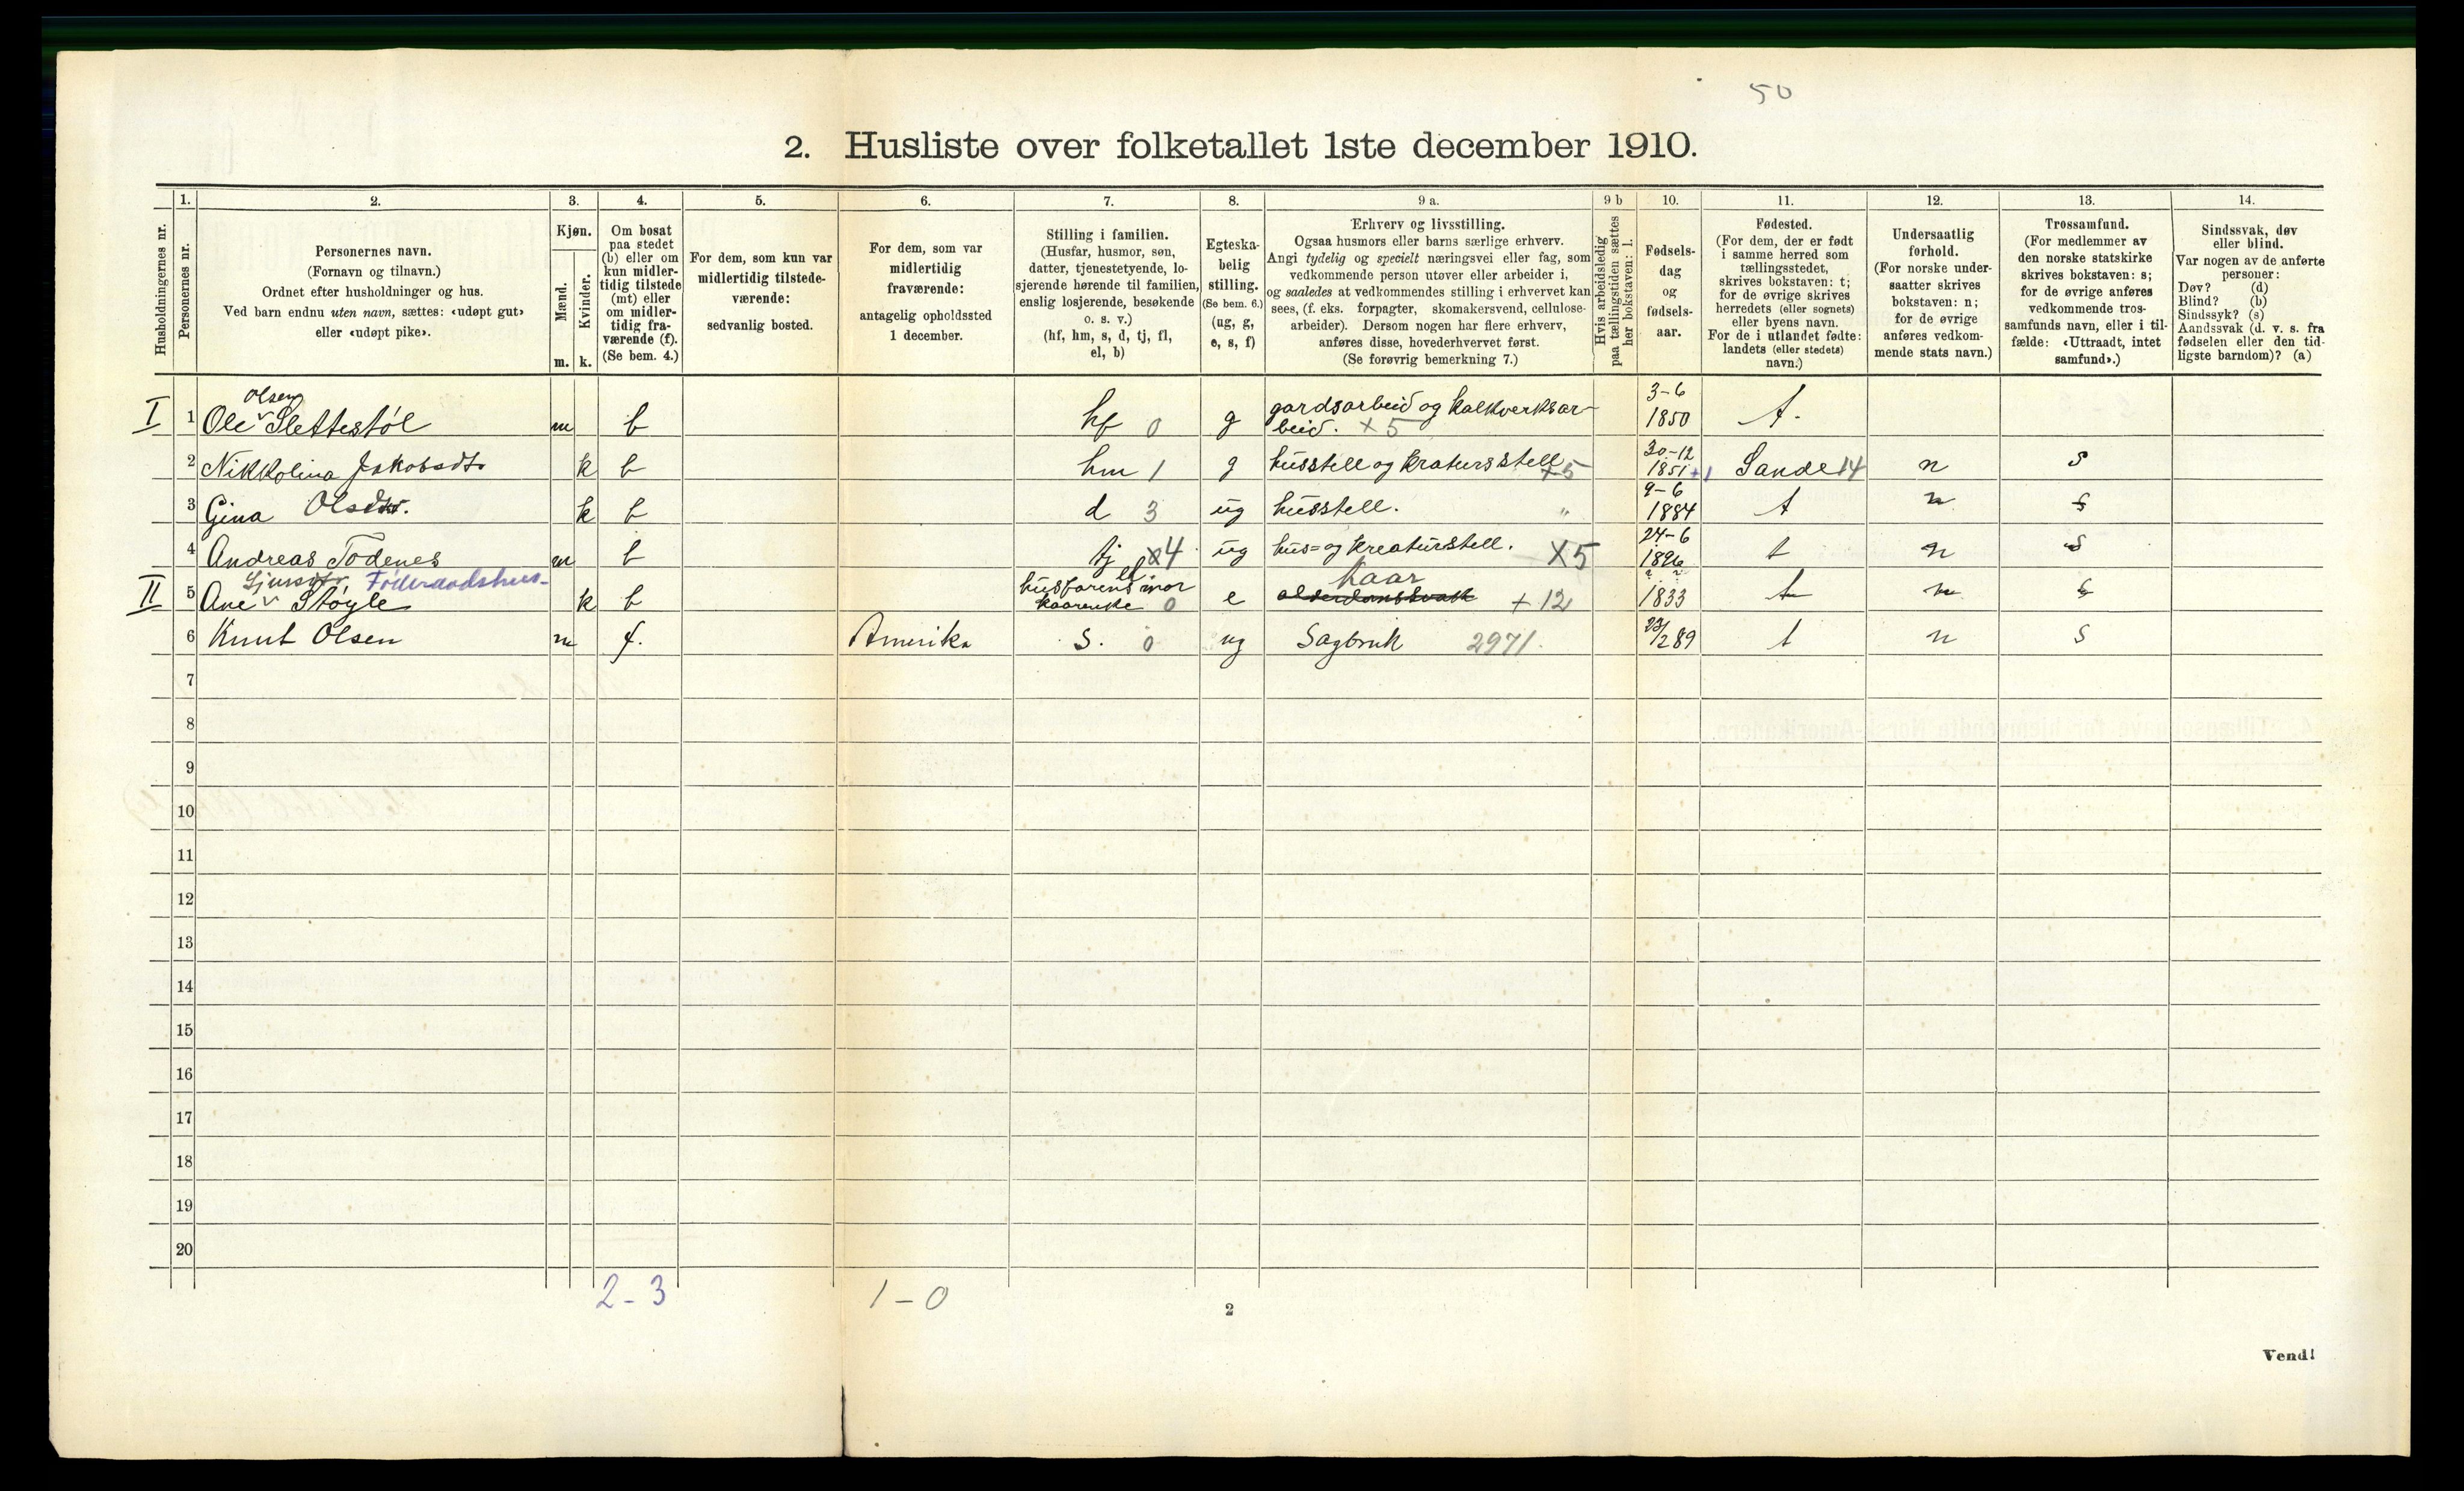 50
2. Husliste over folketallet 1ste december 1910.
Husholdningernes nr.
1.
Personernes nr.
2.
Personernes navn.
(Fornavn og tilnavn.)
Ordnet efter husholdninger og hus.
Ved barn endnu uten navn, sættes: «udøpt gut»
eller «udøpt pike».
3.
Kjøn.
Mænd.
m.
Kvinder.
k.
4.
Om bosat
paa stedet
(b) eller om
kun midler-
tidig tilstede
(mt) eller
om midler-
tidig fra-
værende (f).
(Se bem. 4.)
5.
For dem, som kun var
midlertidig tilstede-
værende:
sedvanlig bosted.
6.
For dem, som var
midlertidig
fraværende:
antagelig opholdssted
1 december.
7.
Stilling i familien.
(Husfar, husmor, søn,
datter, tjenestetyende, lo-
sjerende hørende til familien,
enslig losjerende, besøkende
o. s. v.)
(hf, hm, s, d, tj, fl,
el, b)
8.
Egteska-
belig
stilling.
(Se bem. 6.)
(ug, g,
e, s, f)
9 a.
Erhverv og livsstilling.
Ogsaa husmors eller barns særlige erhverv.
Angi tydelig og specielt næringsvei eller fag, som
vedkommende person utøver eller arbeider i,
og saaledes at vedkommendes stilling i erhvervet kan
sees, (f. eks. forpagter, skomakersvend, cellulose-
arbeider). Dersom nogen har flere erhverv,
anføres disse, hovederhvervet først.
(Se forøvrig bemerkning 7.)
9 b
Hvis arbeidsledig
paa tællingstiden sættes
her bokstaven: l.
10.
Fødsels-
dag
og
fødsels-
aar.
11.
Fødested.
(For dem, der er født
i samme herred som
tællingsstedet,
skrives bokstaven: t;
for de øvrige skrives
herredets (eller sognets)
eller byens navn.
For de i utlandet fødte:
landets (eller stedets)
navn.)
12.
Undersaatlig
forhold.
(For norske under-
saatter skrives
bokstaven: n;
for de øvrige
anføres vedkom-
mende stats navn.)
13.
Trossamfund.
(For medlemmer av
den norske statskirke
skrives bokstaven: s;
for de øvrige anføres
vedkommende tros-
samfunds navn, eller i til-
fælde: «Uttraadt, intet
samfund».)
14.
Sindssvak, døv
eller blind.
Var nogen av de anførte
personer:
Døv? (d)
Blind? (b)
Sindssyk? (s)
Aandssvak (d. v. s. fra
fødselen eller den tid-
ligste barndom)? (a)
Olsen
I 1 Ole Slettestøl m b hf 0 g gardsarbeid og kalkverksar-
beid. ×5 3-6
1850 t.
2 Nikkolina Jakobsdtr k b hm 1 g husstell og kraturs stell +5 30-12
1851 +1 Sande 14 n s
3 Gina Olsdtr. k b d 3 ug husstell. " 9-6
1884 t n s
4 Andreas Todenes m b tj 4 ug hus- og kreaturstell. ×5 24-6
1896 t n s
Føderaadshus-
II 5 Ane Støyle k b husfarens mor el
kaarenke 0 e kaar + 12 1833 t n s
6 Knut Olsen m f. Amerika s. 0 ug Sagbruk 2971. 23/2 89 t n s
7
8
9
10
11
12
13
14
15
16
17
18
19
20
2-3
1-0
2
Vend!